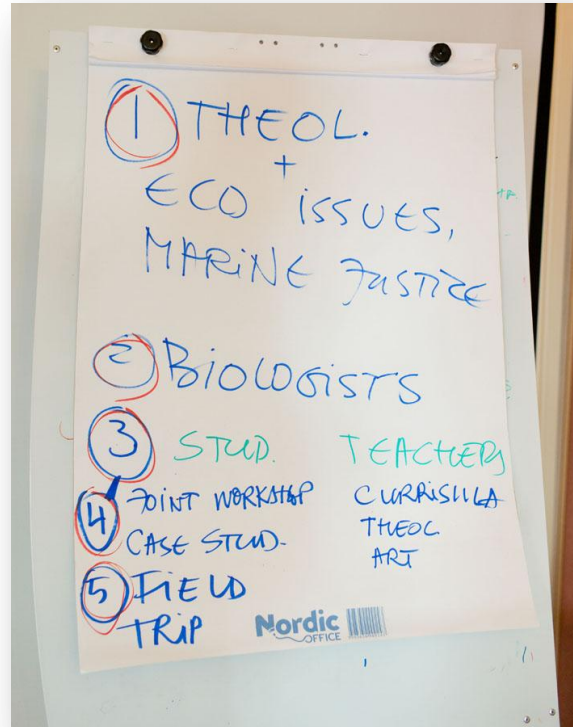 1 THEOL.
+
ECO ISSUES,
MARINE JUSTICE
2 BIOLOGISTS
3 STUD. TEACHERS
4 JOINT WORKSHOP CURRISULLA
CASE STUD. THEOL
ART
5 FIELD
TRIP
Nordic
OFFICE